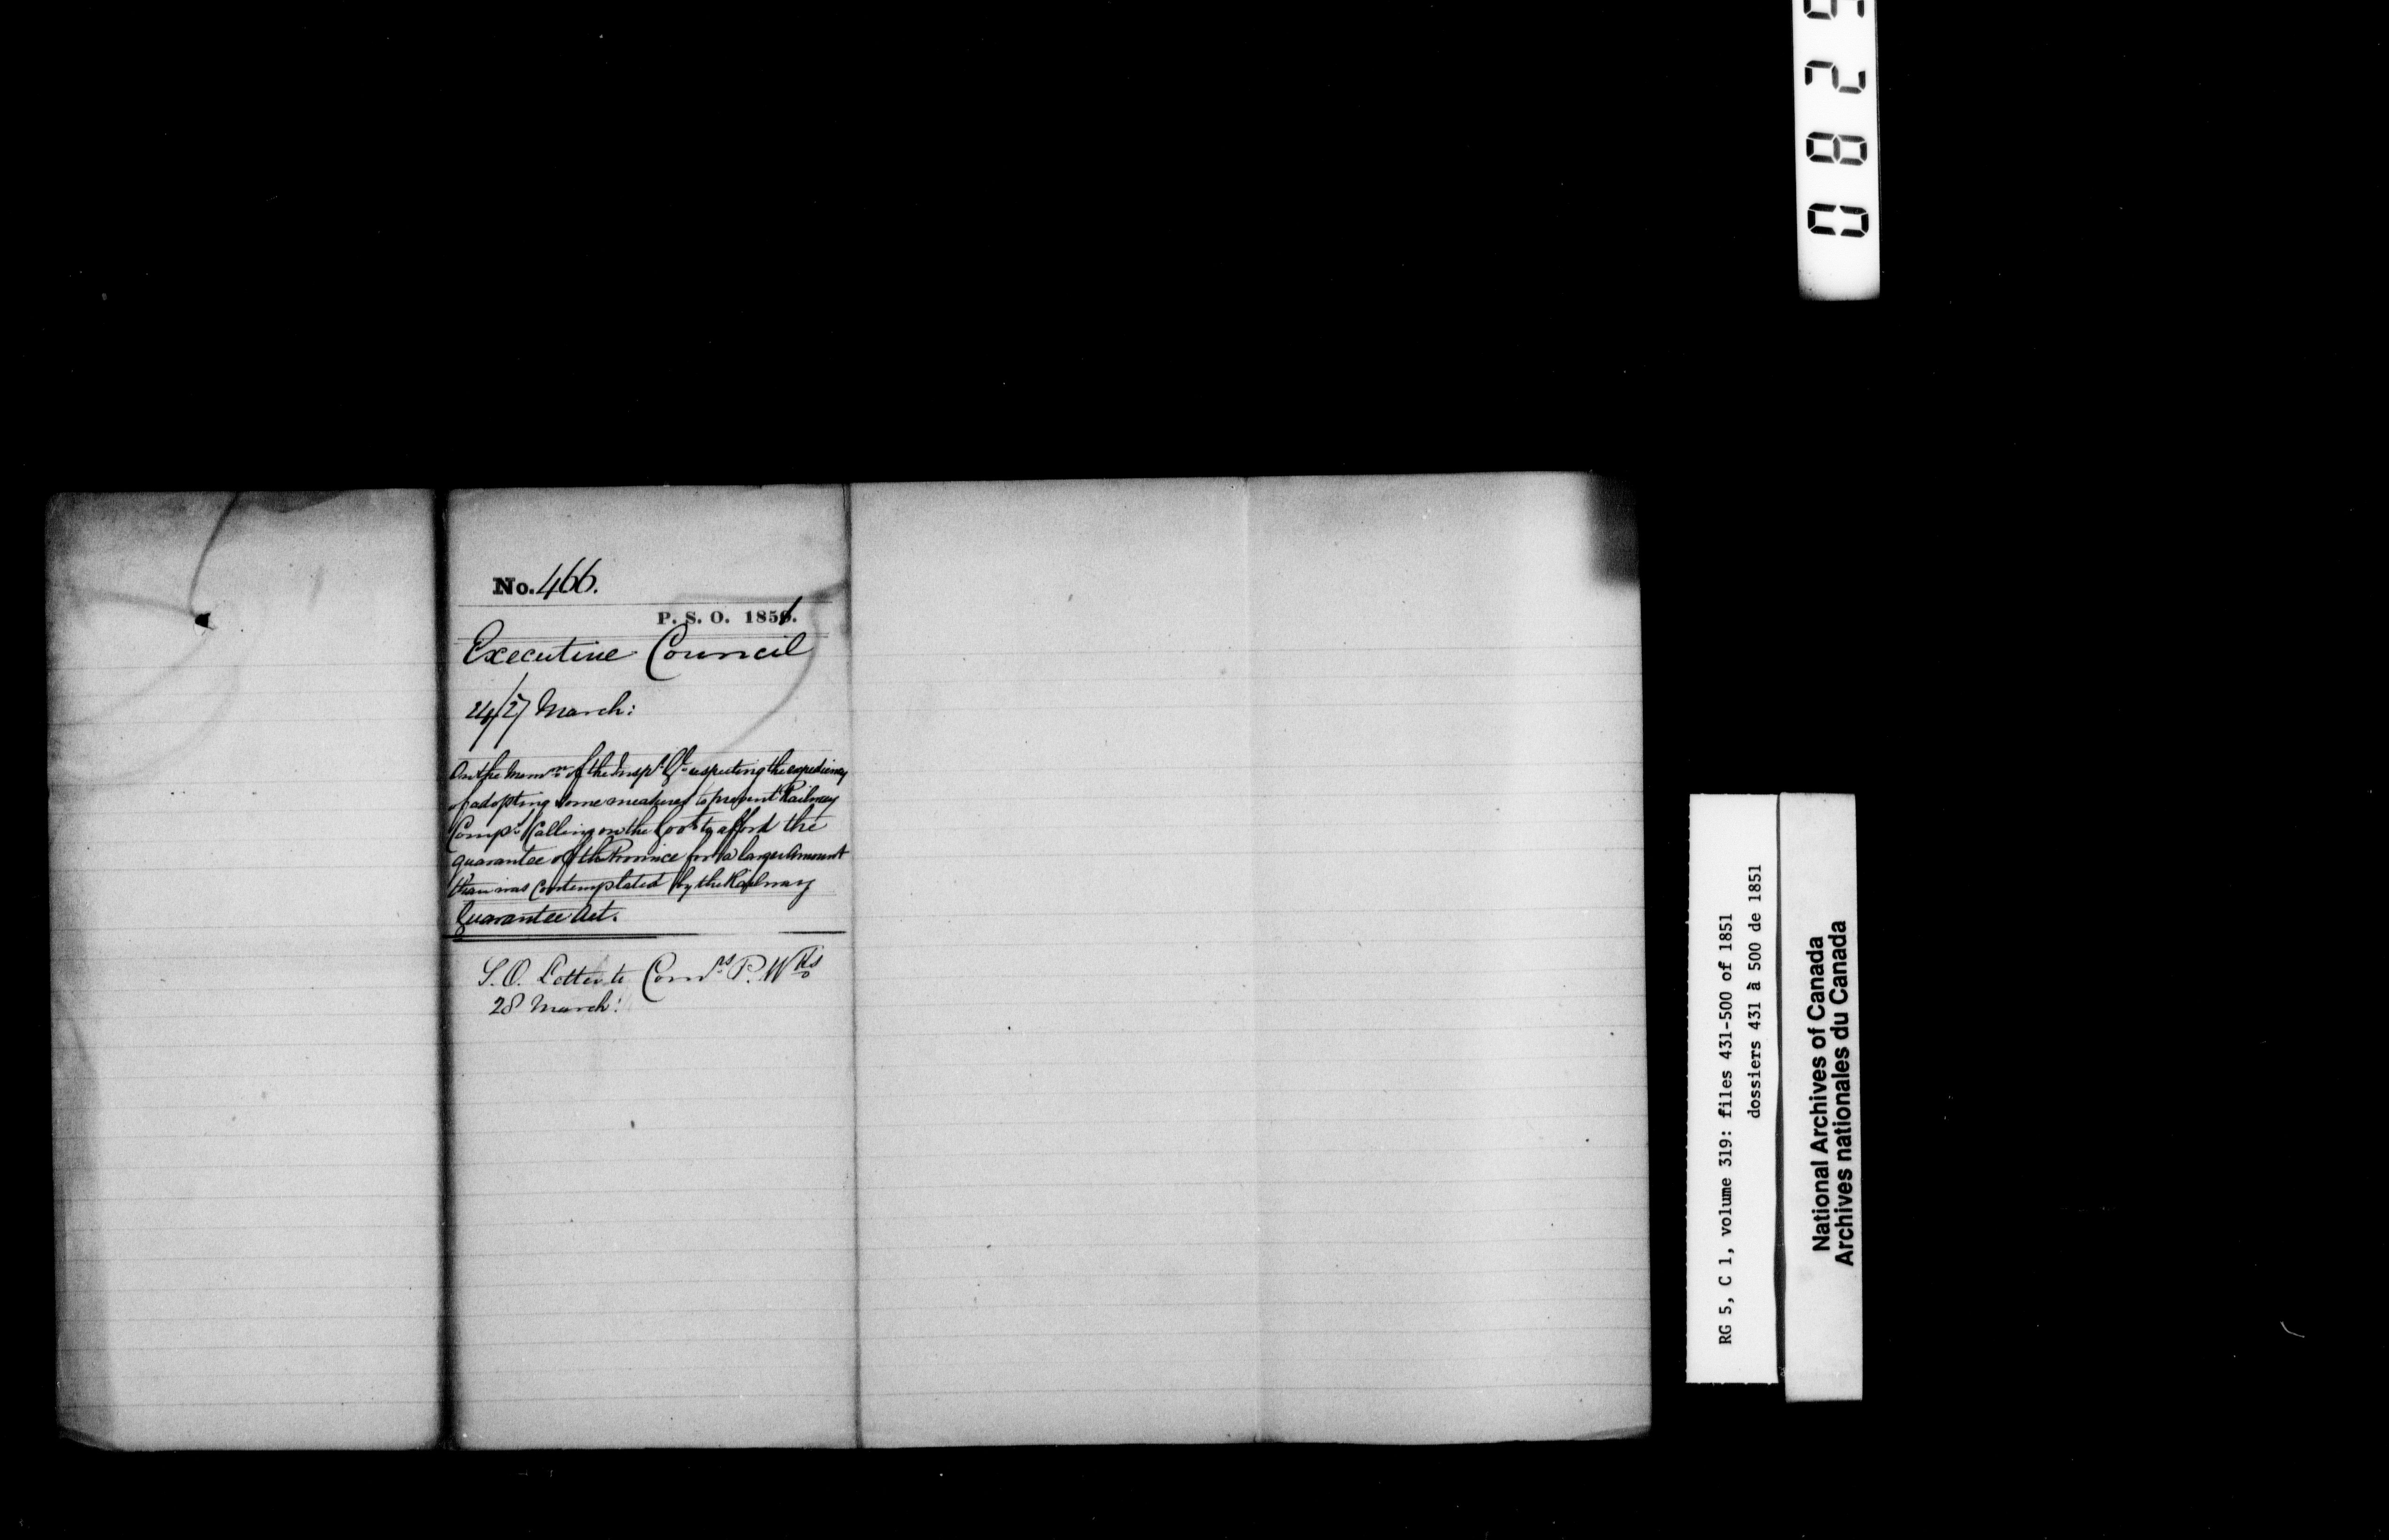 No. 466.
P. S. O. 1851.
Executive Council
24/27 March:
On the Memm of the Inspr Gl respecting the expediency
of adopting some measures to prevent Railway
Comps Calling on the Govt to afford the
guarantee of the Province for a larger Amount
than was Contemplated by the Railway
Guarantee Act.
S. O. Letter to Comrs P. Wks
28 March:
RG 5, C 1, volume 319: files 431-500 of 1851
dossiers 431 à 500 de 1851
National Archives of Canada
Archives nationales du Canada
0825